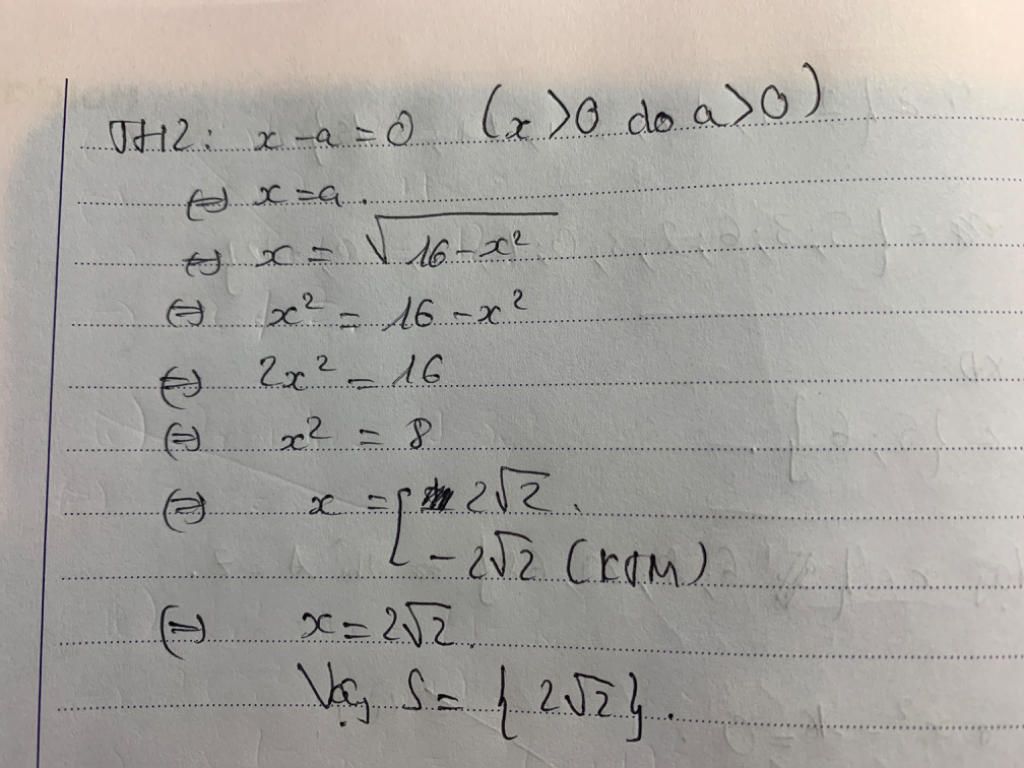 TH2: x - a = 0 (x > 0 do a > 0)
⇔ x = a.
⇔ x = √(16 - x²)
⇔ x² = 16 - x²
⇔ 2x² = 16
⇔ x² = 8
⇔ x = [ 2√2.
- 2√2 (KTM)
⇔ x = 2√2.
Vậy S = { 2√2 }.